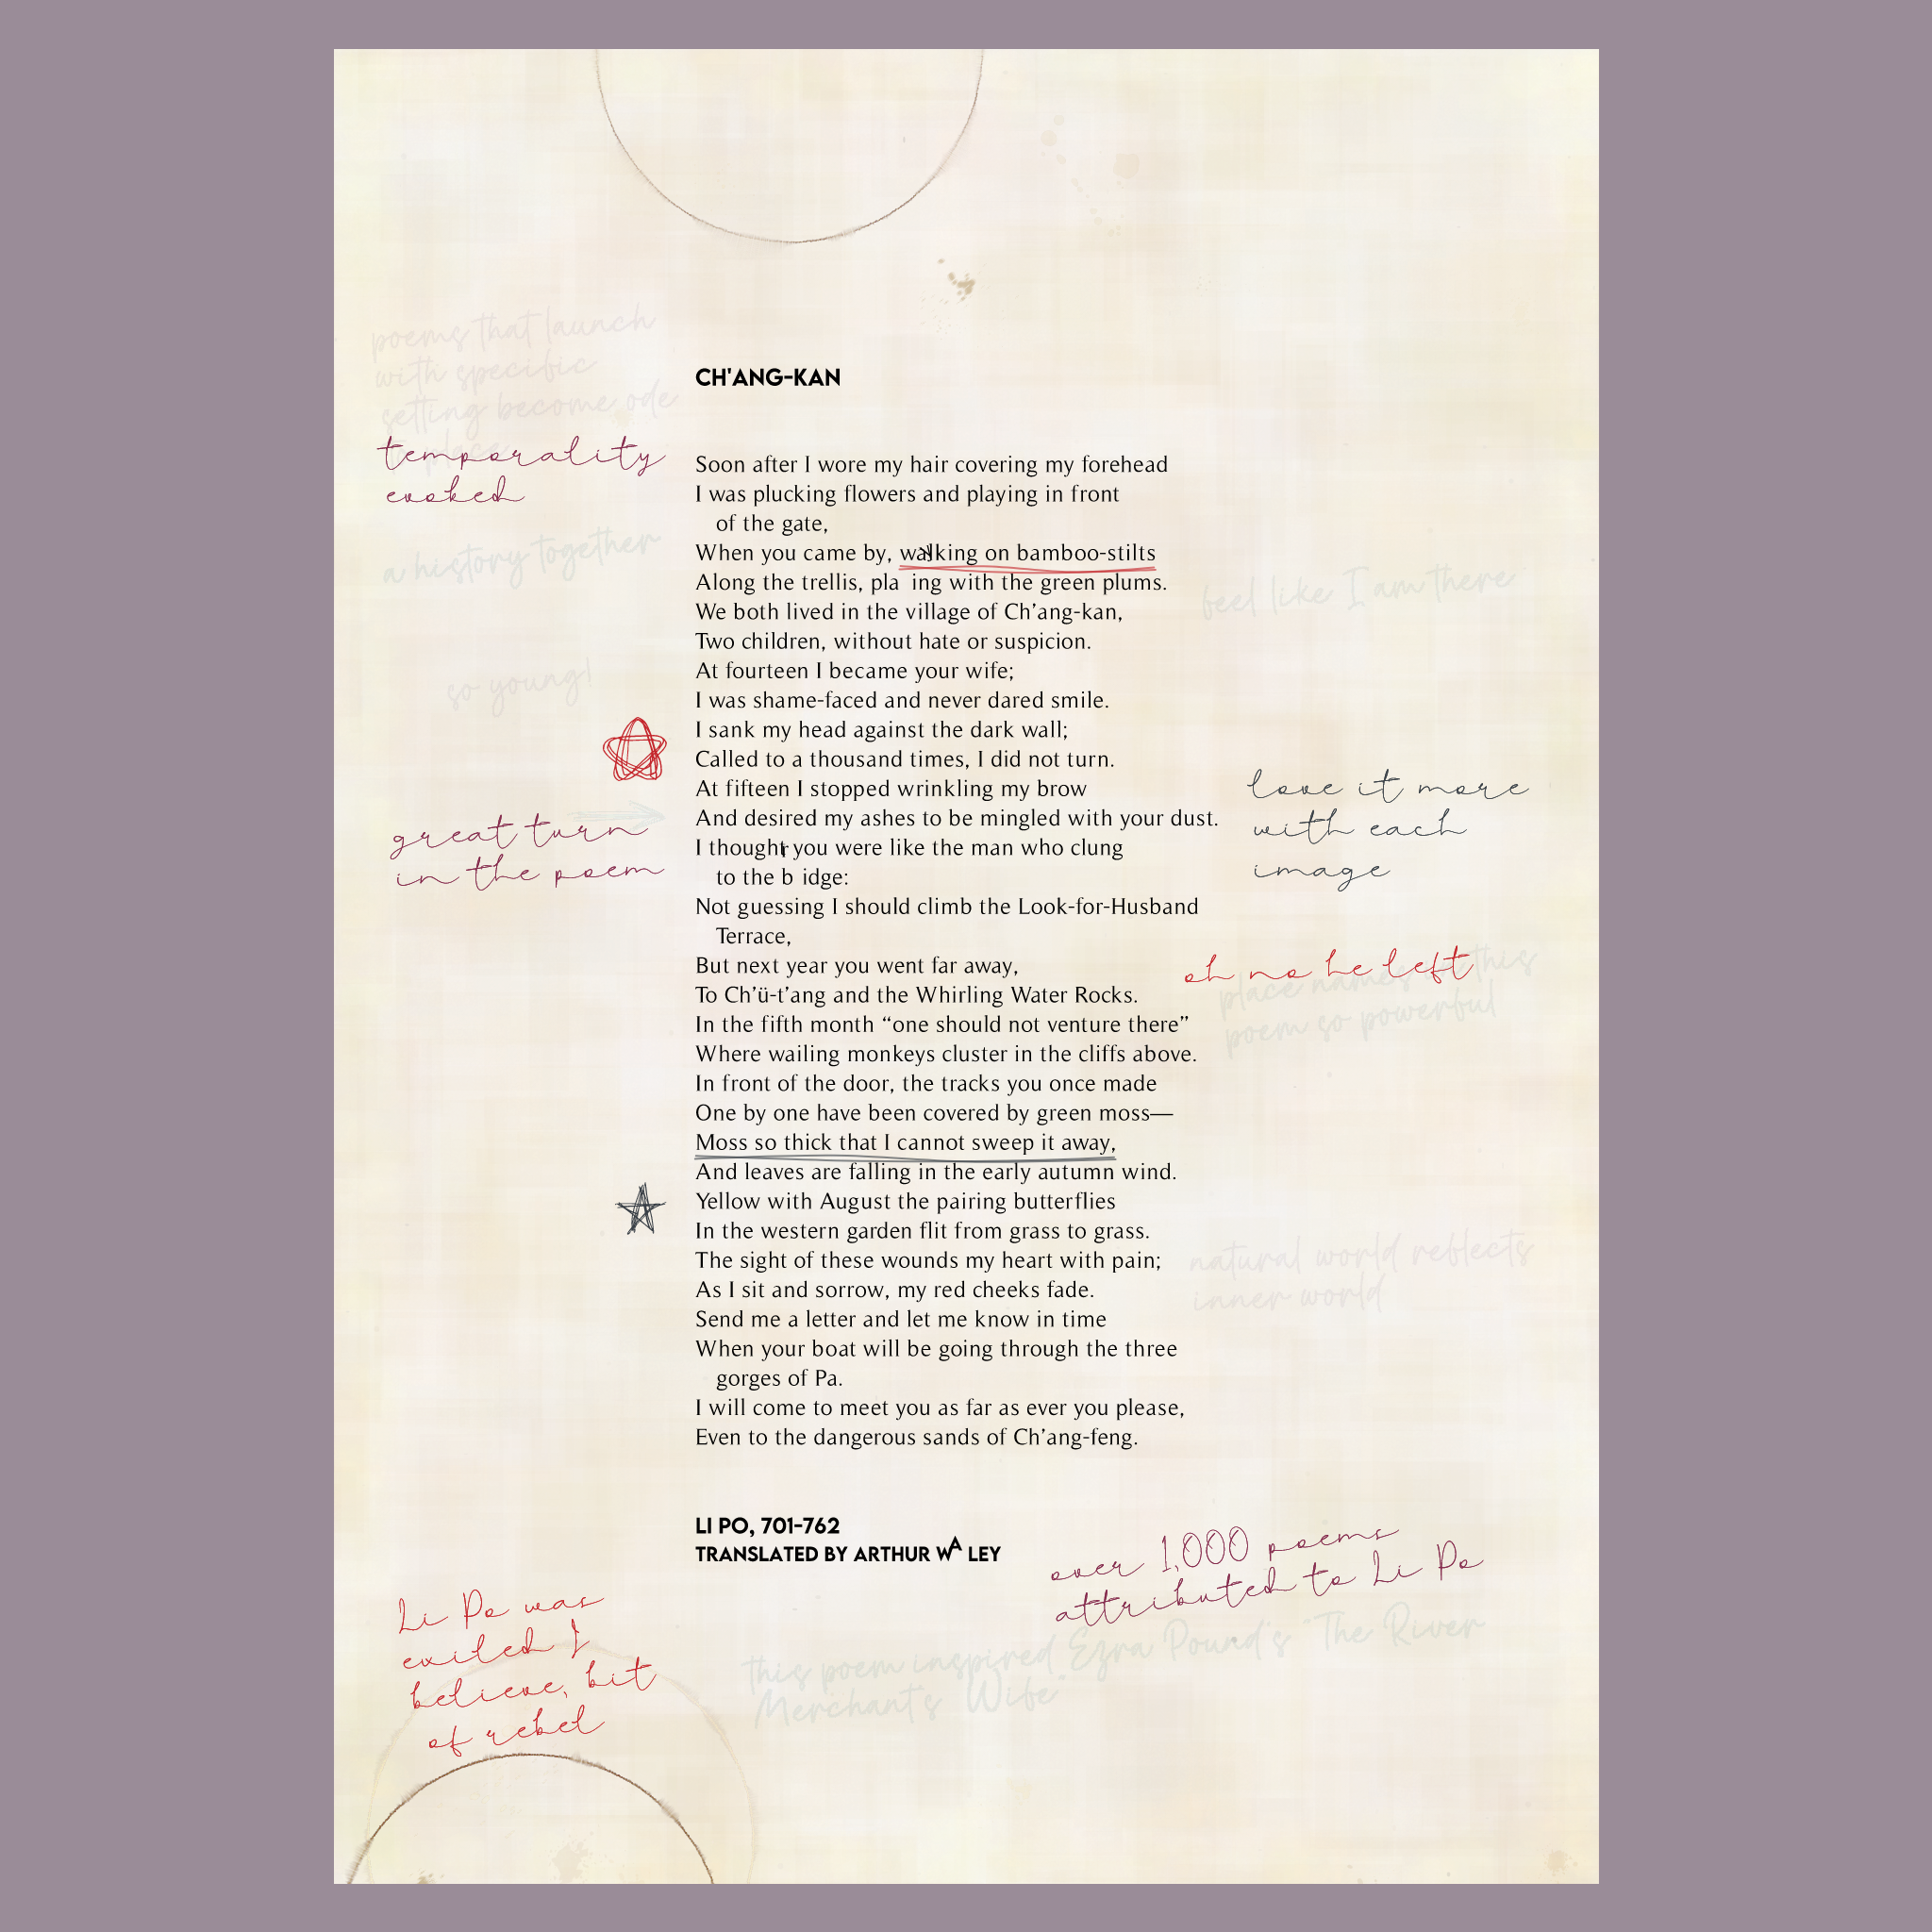 poems that launch
with specific
setting become ode
place
CH'ANG-KAN
temporality
evoked
Soon after I wore my hair covering my forehead
I was plucking flowers and playing in front
of the gate,
a history together
When you came by, walking on bamboo-stilts
Along the trellis, pla y ing with the green plums.
feel like I am there
We both lived in the village of Ch’ang-kan,
Two children, without hate or suspicion.
At fourteen I became your wife;
so young!
I was shame-faced and never dared smile.
I sank my head against the dark wall;
Called to a thousand times, I did not turn.
At fifteen I stopped wrinkling my brow
And desired my ashes to be mingled with your dust.
love it more
with each
image
great turn
in the poem
I thought you were like the man who clung
to the b r idge:
Not guessing I should climb the Look-for-Husband
Terrace,
But next year you went far away,
oh no he left
place names this
poem so powerful
To Ch’ü-t’ang and the Whirling Water Rocks.
In the fifth month “one should not venture there”
Where wailing monkeys cluster in the cliffs above.
In front of the door, the tracks you once made
One by one have been covered by green moss—
Moss so thick that I cannot sweep it away,
And leaves are falling in the early autumn wind.
Yellow with August the pairing butterflies
In the western garden flit from grass to grass.
The sight of these wounds my heart with pain;
natural world reflects
inner world
As I sit and sorrow, my red cheeks fade.
Send me a letter and let me know in time
When your boat will be going through the three
gorges of Pa.
I will come to meet you as far as ever you please,
Even to the dangerous sands of Ch’ang-feng.
LI PO, 701-762
TRANSLATED BY ARTHUR WALEY
over 1,000 poems
attributed to Li Po
Li Po was
exiled I
believe, bit
of rebel
this poem inspired Ezra Pound's "The River
Merchant's Wife"